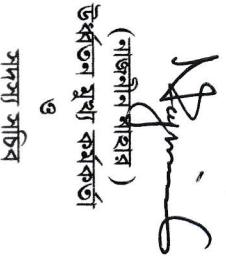 (নাজনীন নাহার)
উর্ধ্বতন মুখ্য কর্মকর্তা
ও
সদস্য সচিব